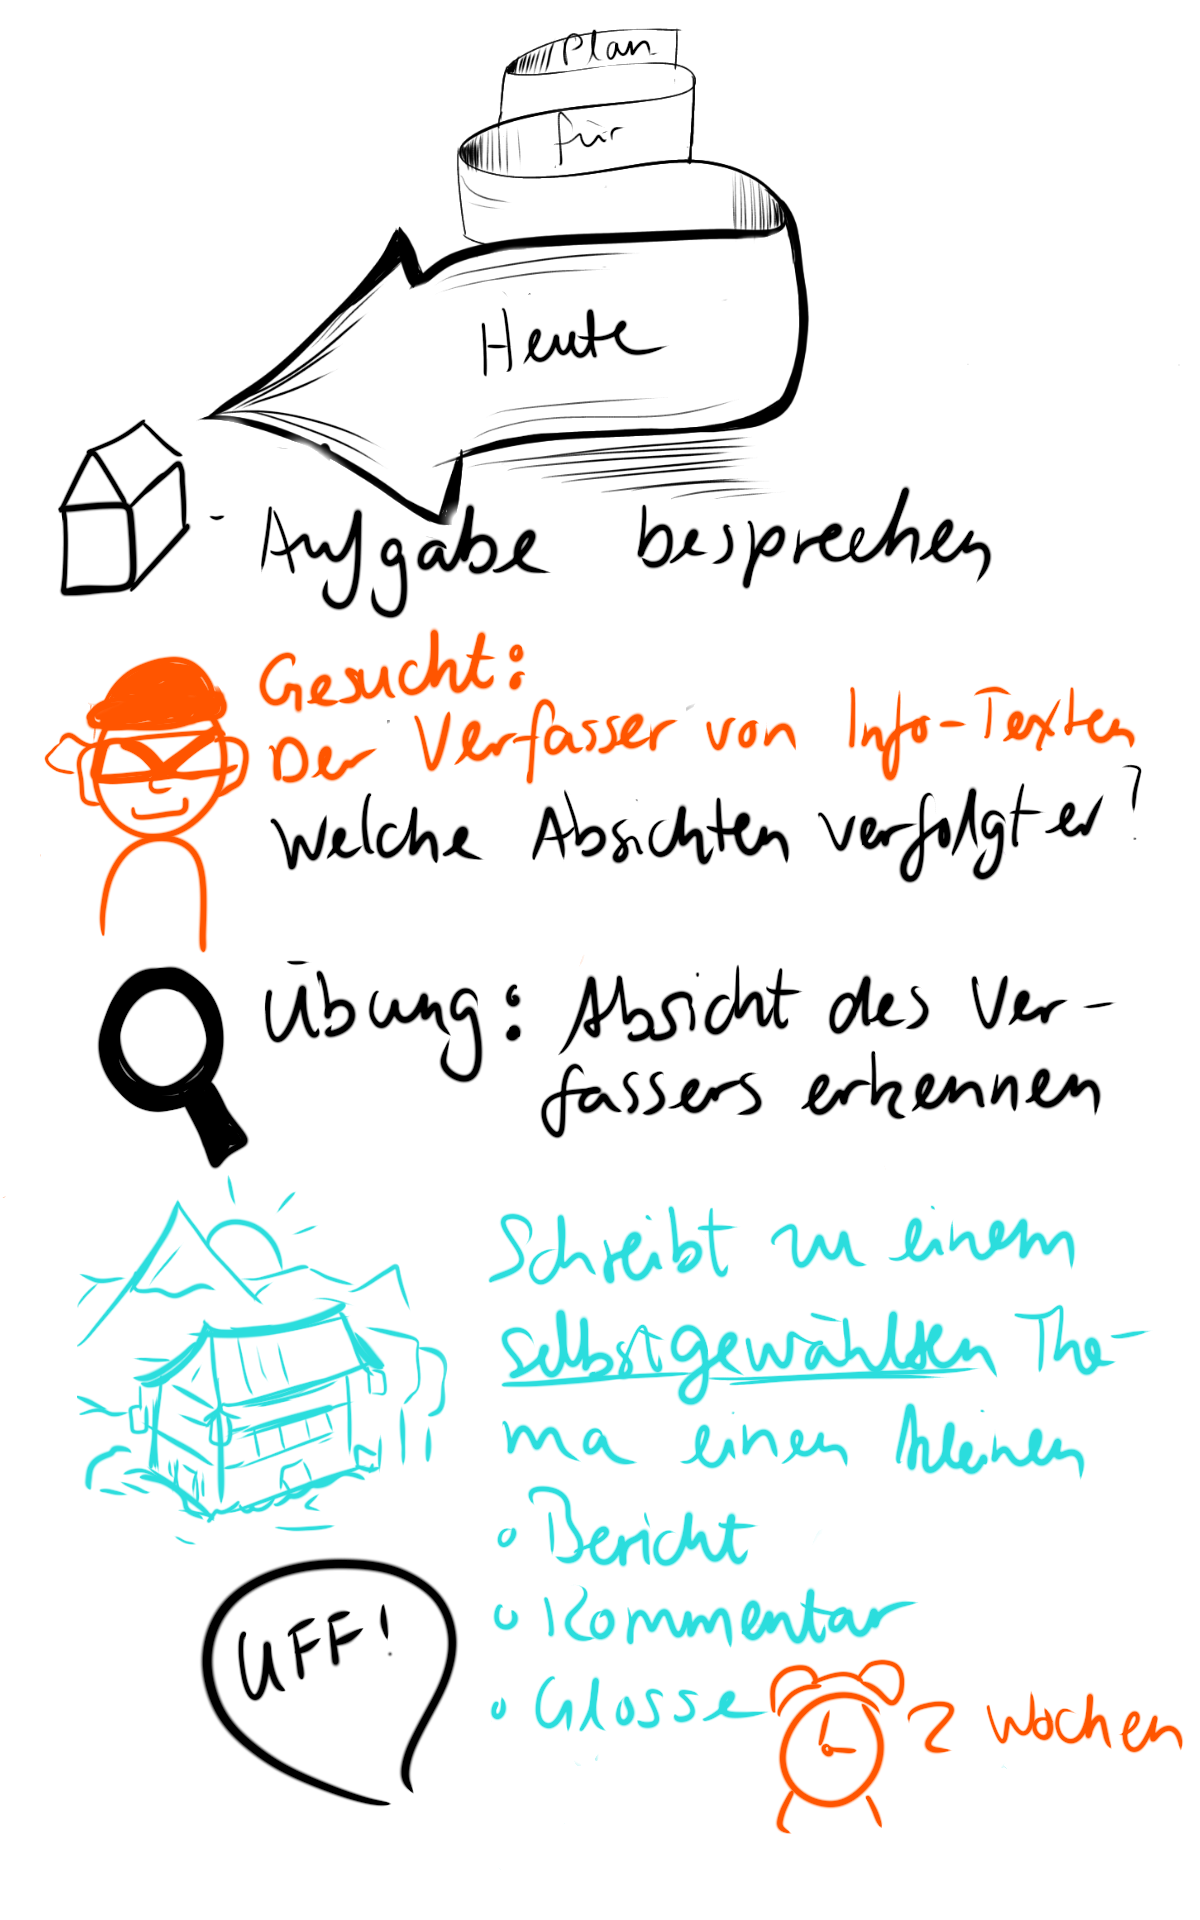 Plan
für
Heute
- Aufgabe besprechen
Gesucht:
Der Verfasser von Info-Texten
Welche Absichten verfolgt er?
Übung: Absicht des Ver-
fassers erkennen
Schreibt zu einem
selbstgewählten The-
ma einen kleinen
• Bericht
• Kommentar
• Glosse
2 Wochen
UFF!